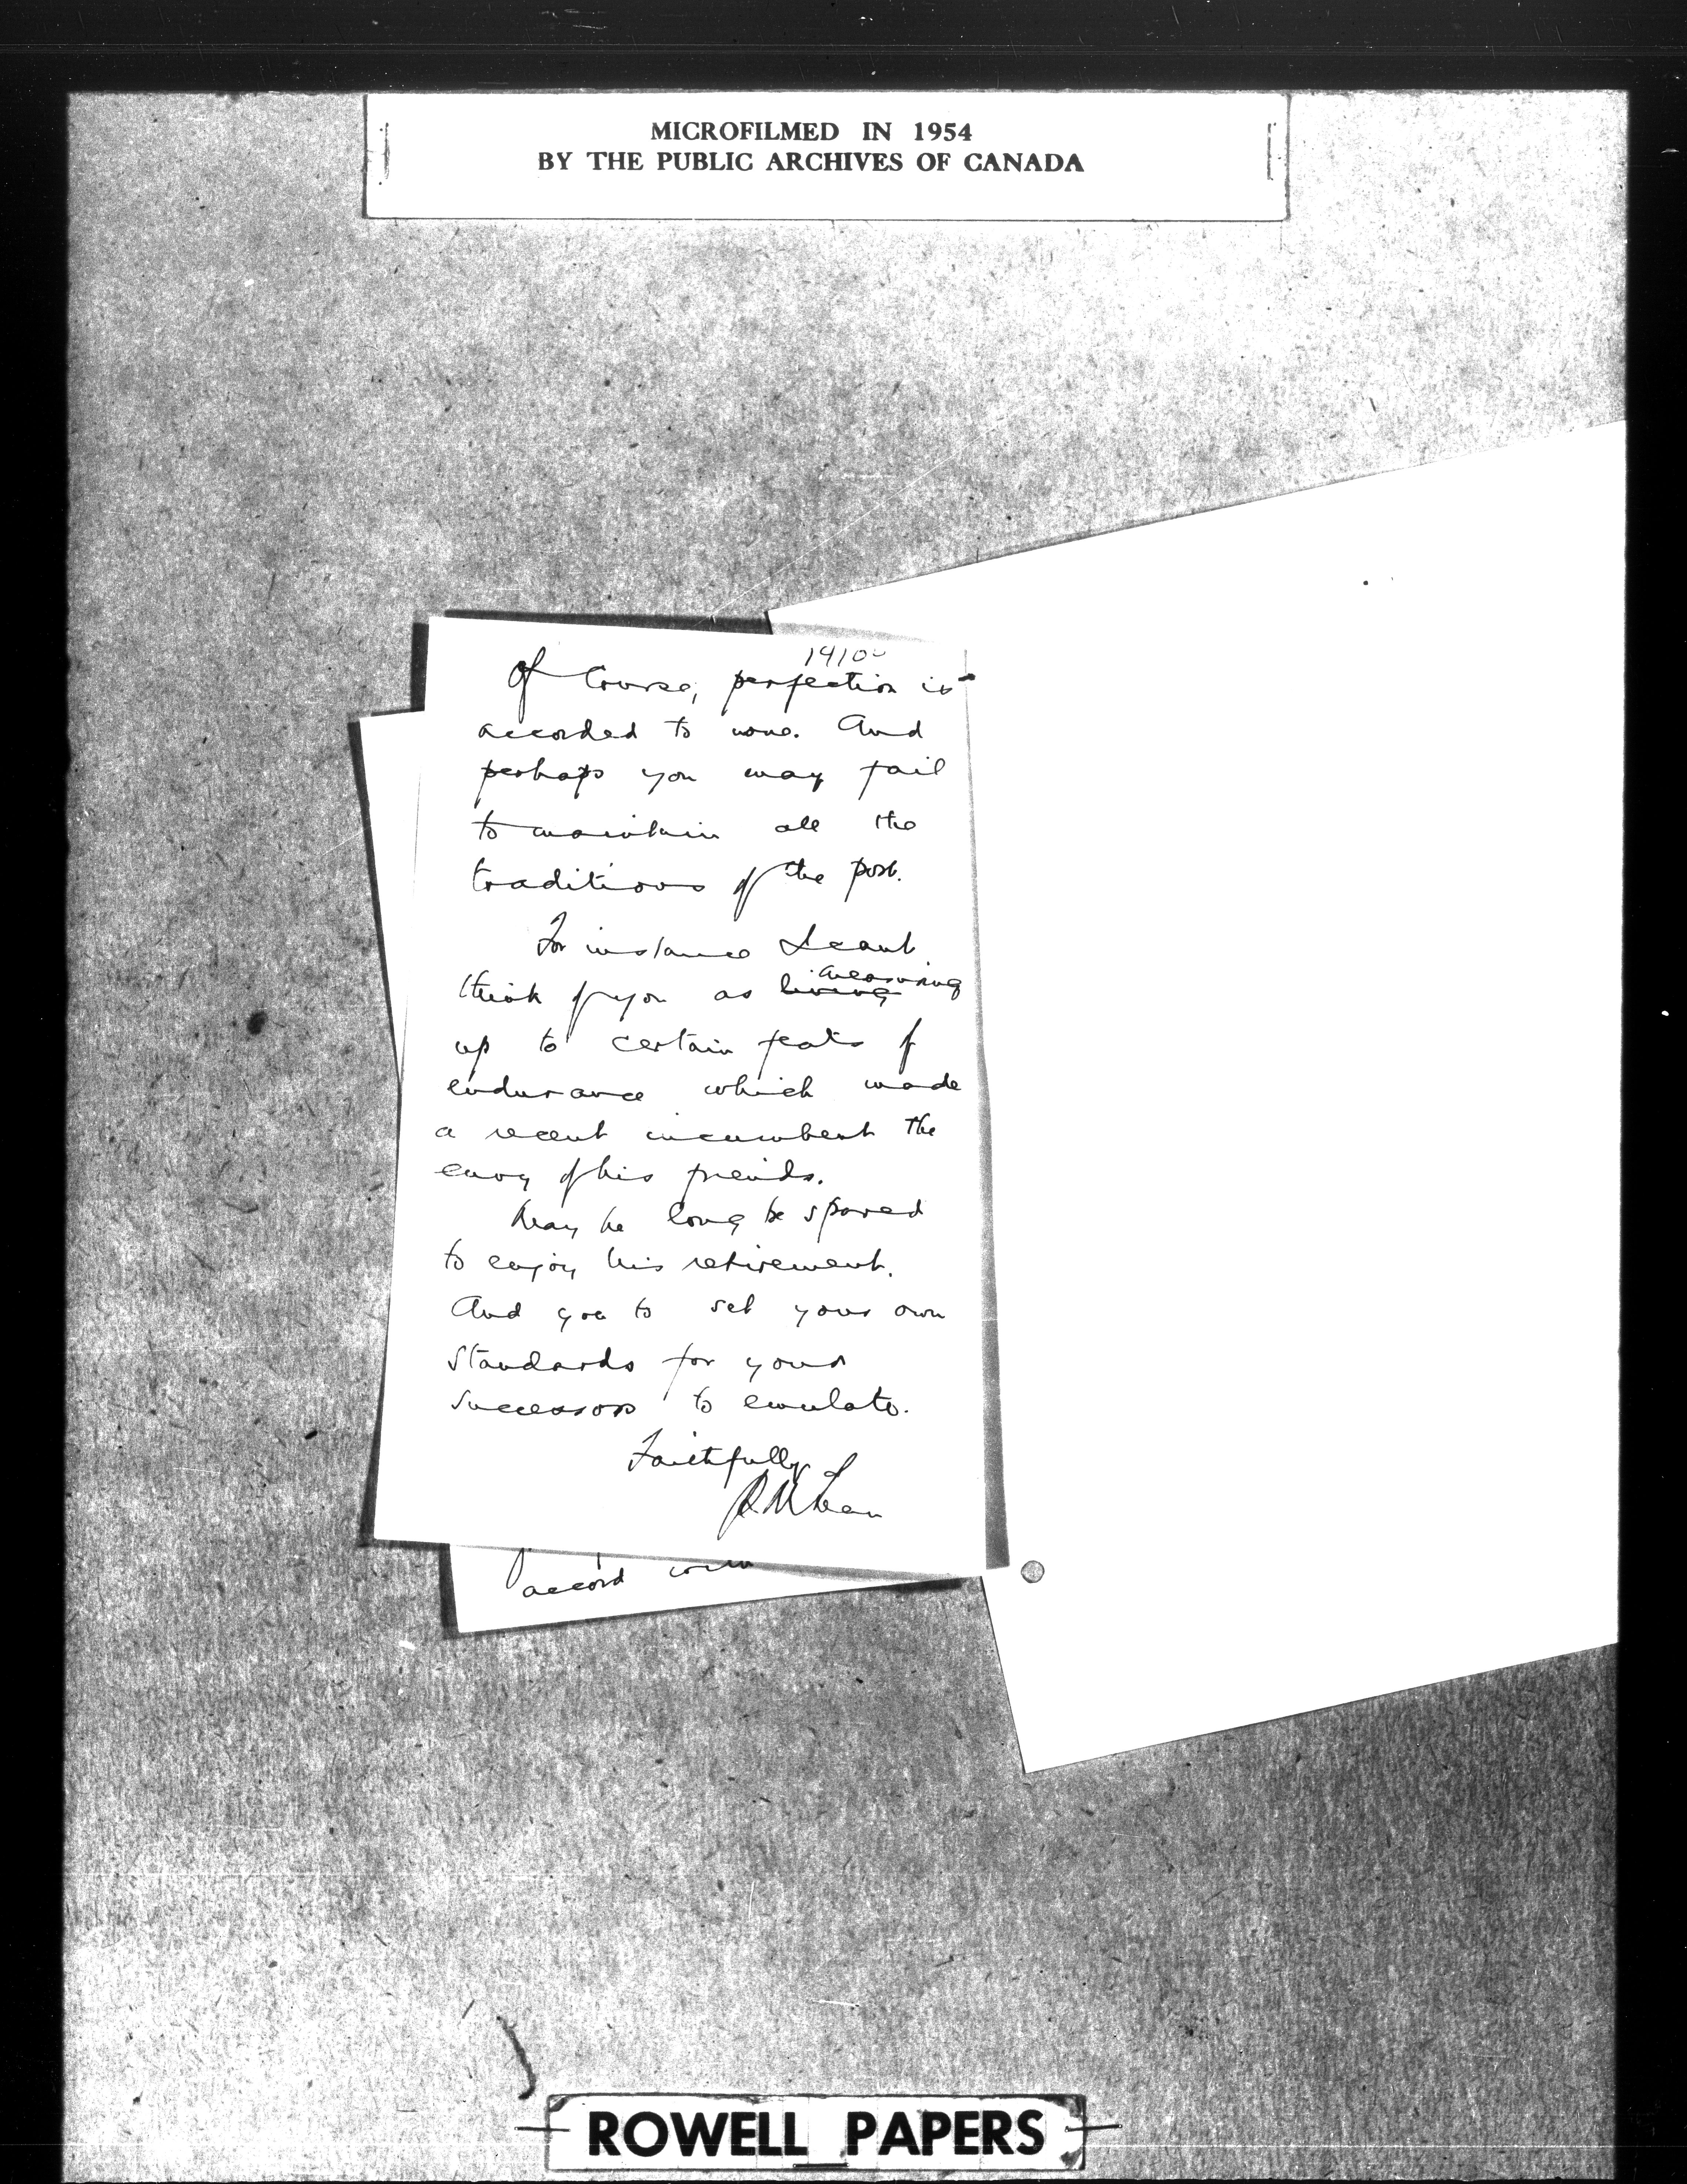 MICROFILMED IN 1954
BY THE PUBLIC ARCHIVES OF CANADA
Of Course, perfection is
accorded to none. And
perhaps you may fail
to maintain all the
traditions of the post.
For instance I cant
think of you as living measuring
up to certain feats of
endurance which made
a recent incumbent the
envy of his friends.
May he long be spared
to enjoy his retirement.
And you to set your own
standards for your
successors to emulate.
Faithfully
accord with
ROWELL PAPERS